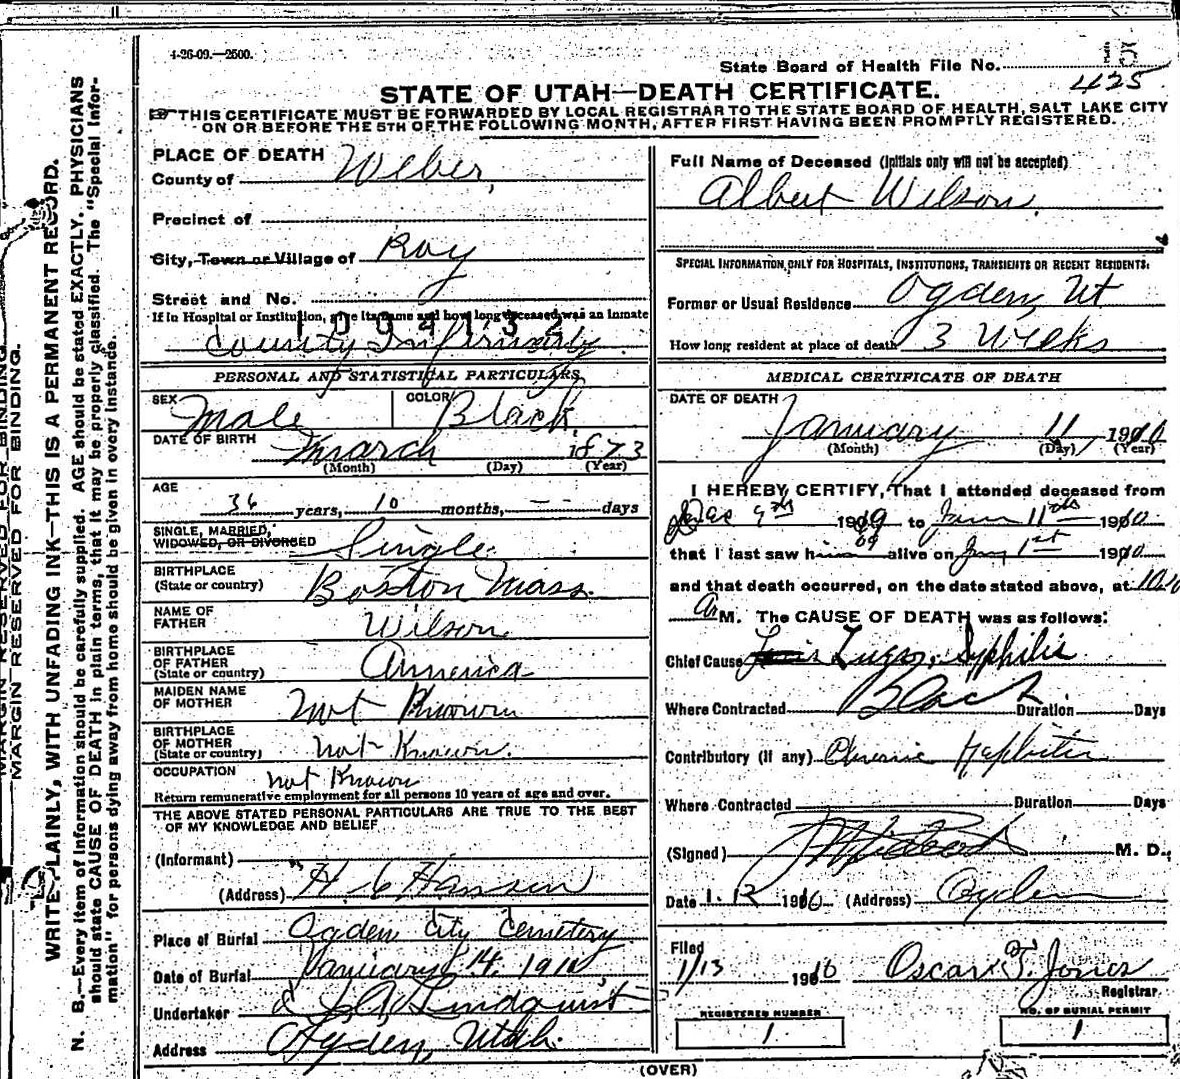 4-26-09.—2500.
State Board of Health File No. 15
425
STATE OF UTAH—DEATH CERTIFICATE.
THIS CERTIFICATE MUST BE FORWARDED BY LOCAL REGISTRAR TO THE STATE BOARD OF HEALTH, SALT LAKE CITY
ON OR BEFORE THE 5TH OF THE FOLLOWING MONTH, AFTER FIRST HAVING BEEN PROMPTLY REGISTERED.
MARGIN RESERVED FOR BINDING.
MARGIN RESERVED FOR BINDING.
WRITE PLAINLY, WITH UNFADING INK—THIS IS A PERMANENT RECORD.
N. B.—Every item of information should be carefully supplied. AGE should be stated EXACTLY. PHYSICIANS
should state CAUSE OF DEATH in plain terms, that it may be properly classified. The "Special Infor-
mation" for persons dying away from home should be given in every instance.
PLACE OF DEATH
County of Weber,
Precinct of
City, Town or Village of Roy
Street and No.
If in Hospital or Institution, give its name and how long deceased was an inmate
1094132
County Infirmary
PERSONAL AND STATISTICAL PARTICULARS
SEX Male COLOR Black
DATE OF BIRTH March 1873
(Month) (Day) (Year)
AGE
36 years, 10 months, -- days
SINGLE, MARRIED,
WIDOWED, OR DIVORCED Single
BIRTHPLACE
(State or country) Boston Mass.
NAME OF
FATHER Wilson
BIRTHPLACE
OF FATHER
(State or country) America
MAIDEN NAME
OF MOTHER Not Known
BIRTHPLACE
OF MOTHER
(State or country) Not Known.
OCCUPATION Not Known
Return remunerative employment for all persons 10 years of age and over.
THE ABOVE STATED PERSONAL PARTICULARS ARE TRUE TO THE BEST
OF MY KNOWLEDGE AND BELIEF
(Informant)
(Address) H. C. Hansen
Place of Burial Ogden City Cemetery
Date of Burial January 14, 1910
Undertaker Lindquist
Address Ogden, Utah.
Full Name of Deceased (Initials only will not be accepted)
Albert Wilson.
SPECIAL INFORMATION ONLY FOR HOSPITALS, INSTITUTIONS, TRANSIENTS OR RECENT RESIDENTS:
Former or Usual Residence Ogden, Ut
How long resident at place of death 3 Weeks
MEDICAL CERTIFICATE OF DEATH
DATE OF DEATH
January 11, 1910
(Month) (Day) (Year)
I HEREBY CERTIFY, That I attended deceased from
Dec 9th 1909 to Jan 11th 1910
that I last saw him alive on Jany 1st 1910
and that death occurred, on the date stated above, at 10.10
A M. The CAUSE OF DEATH was as follows:
Chief Cause Syphilis
Where Contracted Black. Duration Days
Contributory (if any)
Where Contracted Duration Days
(Signed) M. D.
Date 1.12 1910 (Address) Ogden
Filed
1/13 1910 Oscar T. Jones
Registrar.
REGISTERED NUMBER
1
NO. OF BURIAL PERMIT
1
(OVER)